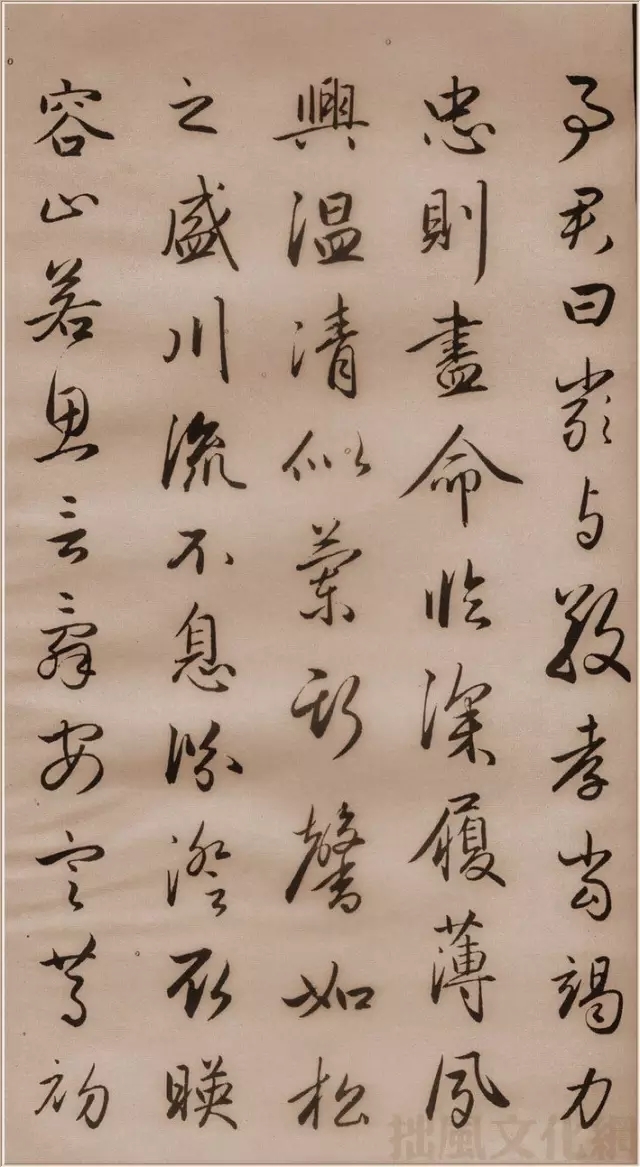 事君曰嚴与敬孝當竭力
忠則盡命臨深履薄夙
興温清似蘭斯馨如松
之盛川流不息淵澄取暎
容止若思言辭安定篤初
拙風文化網